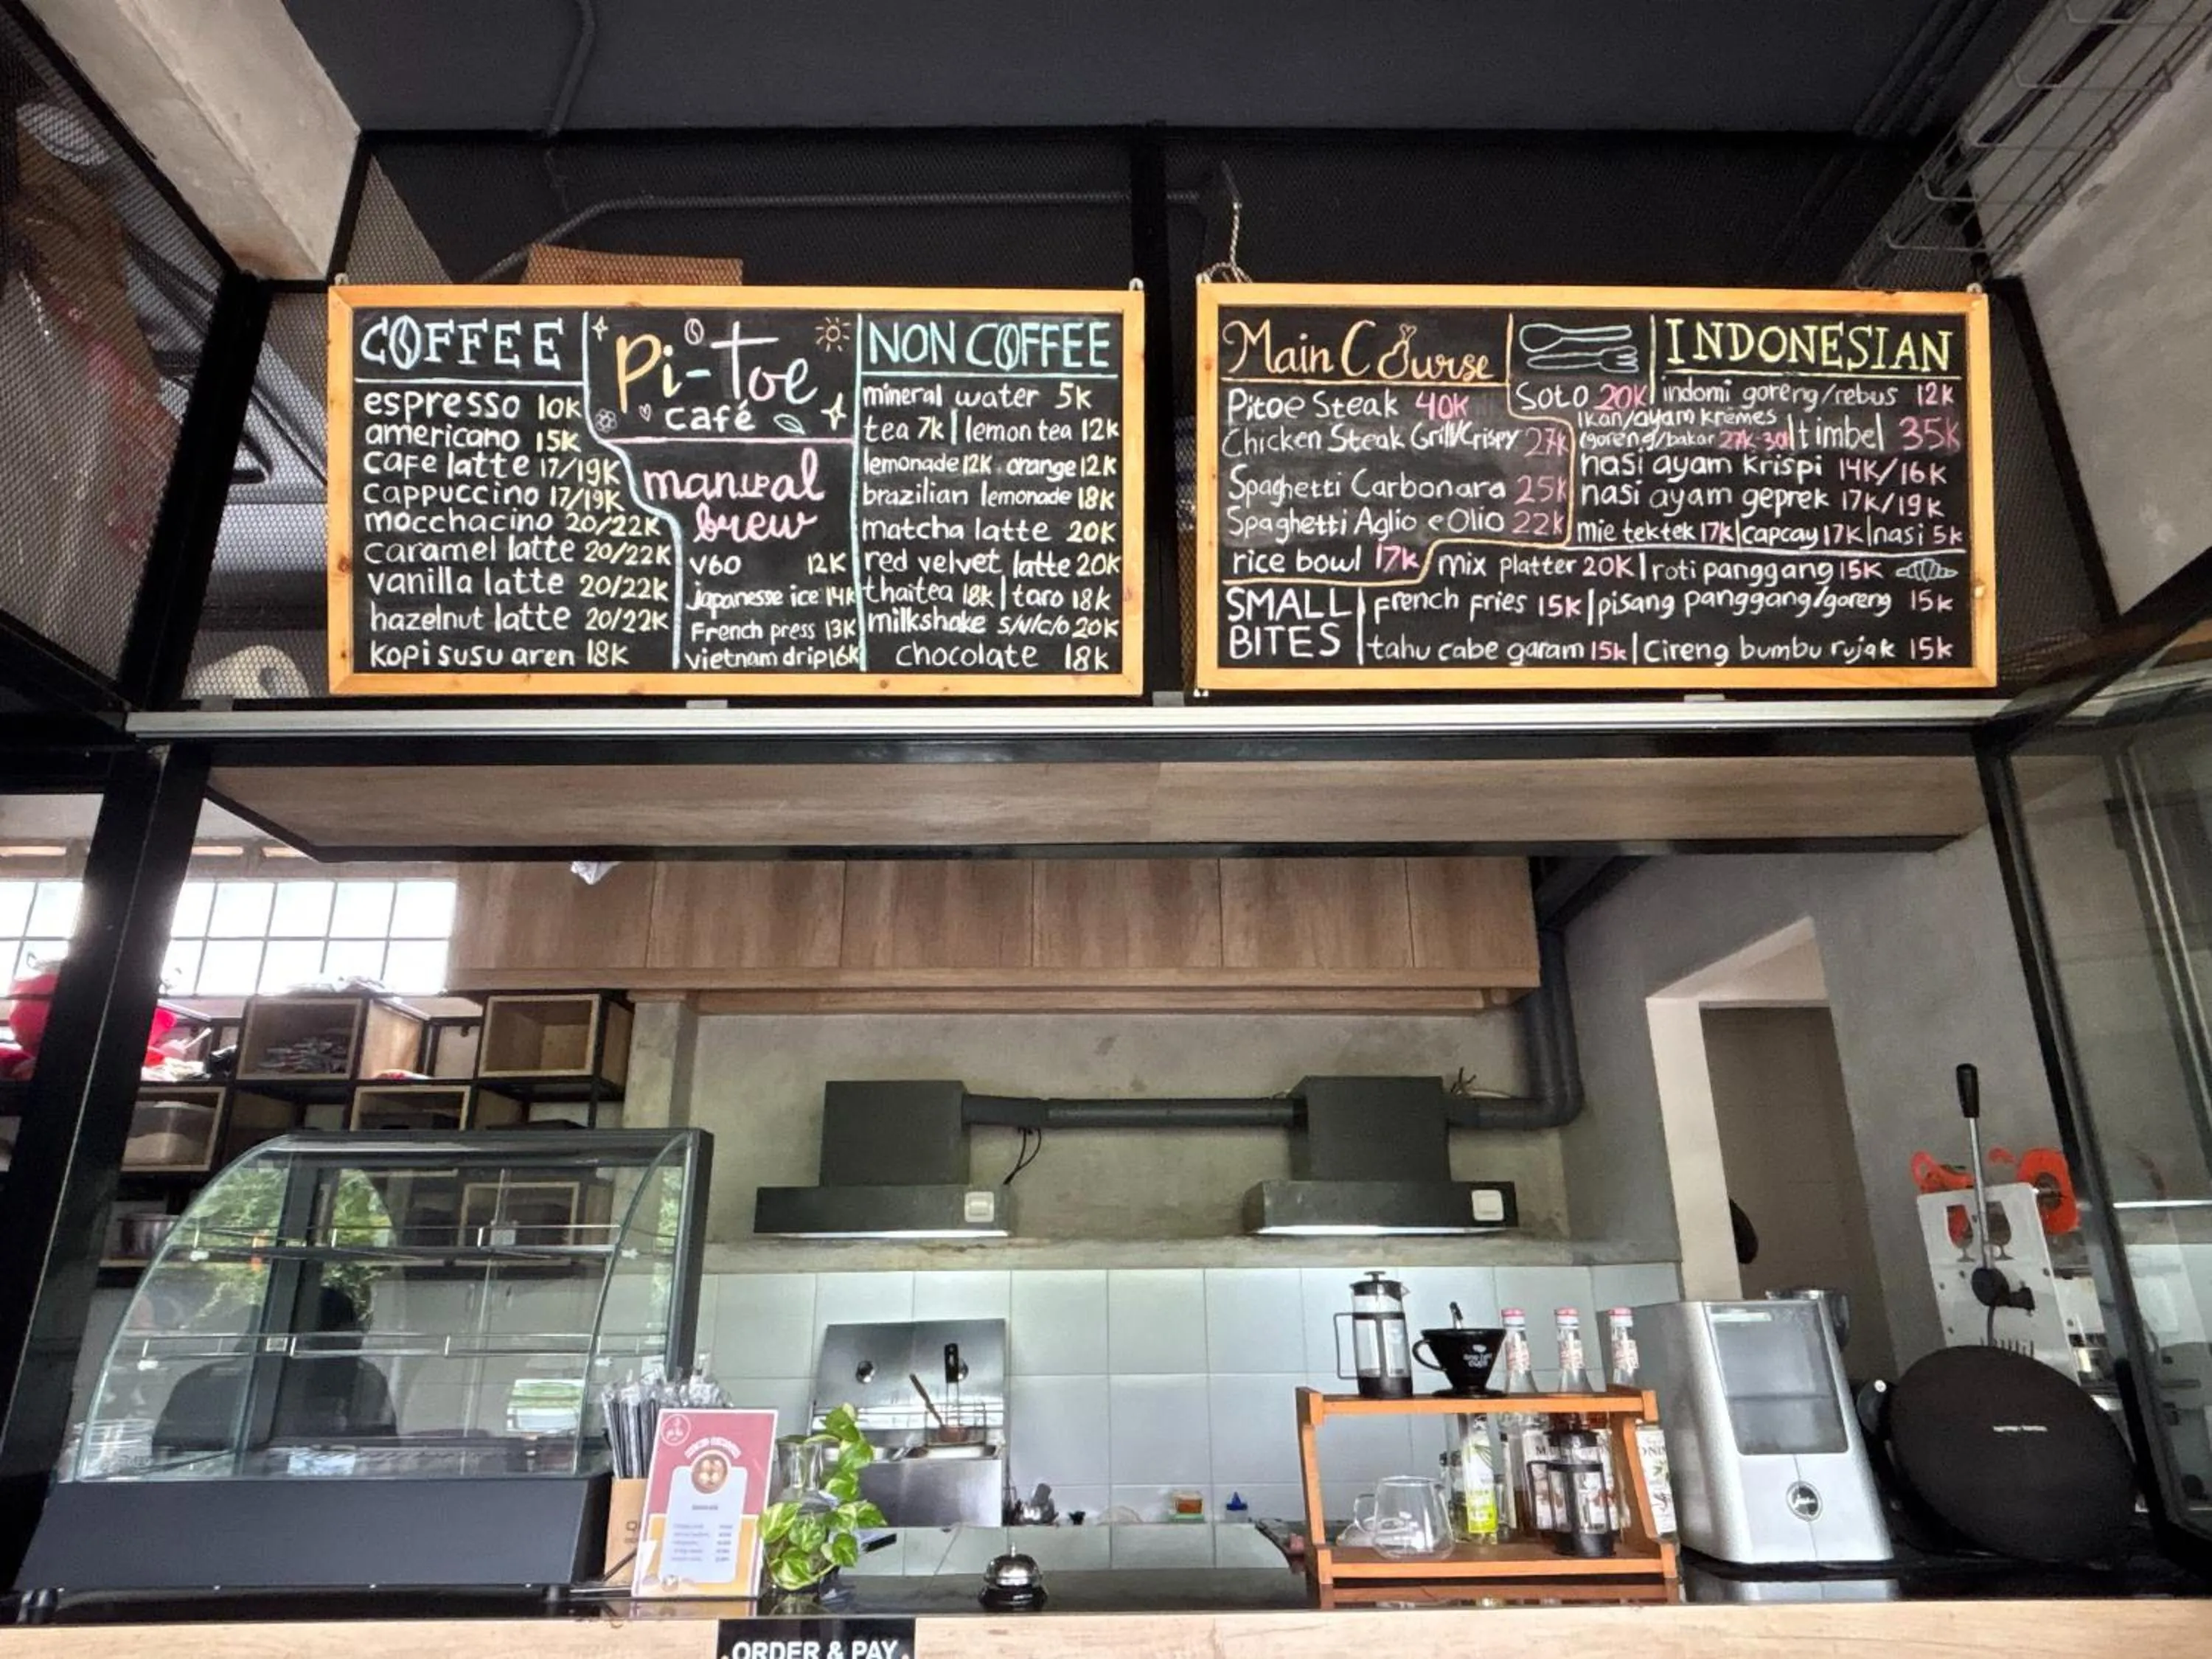 COFFEE
espresso 10K
americano 15K
cafe latte 17/19K
cappuccino 17/19K
mocchacino 20/22K
caramel latte 20/22K
vanilla latte 20/22K
hazelnut latte 20/22K
kopi susu aren 18K
Pi-Toe
café
manual
brew
V60 12K
japanesse ice 14K
French press 13K
vietnam drip 16K
NON COFFEE
mineral water 5K
tea 7k | lemon tea 12K
lemonade 12K . orange 12K
brazilian lemonade 18K
matcha latte 20K
red velvet latte 20K
thaitea 18k | taro 18k
milkshake s/v/c/o 20K
chocolate 18k
Main Course
Pitoe Steak 40K
Chicken Steak Grill/Crispy 27k
Spaghetti Carbonara 25k
Spaghetti Aglio e Olio 22k
rice bowl 17k
INDONESIAN
Soto 20K | indomi goreng/rebus 12K
ikan/ayam kremes
(goreng/bakar 27k-30 | timbel 35k
nasi ayam krispi 14K/16K
nasi ayam geprek 17K/19K
mie tektek 17k | capcay 17K | nasi 5k
SMALL
BITES
mix platter 20K | roti panggang 15K
french fries 15K | pisang panggang/goreng 15k
tahu cabe garam 15k | Cireng bumbu rujak 15k
harman/kardon
ORDER & PAY